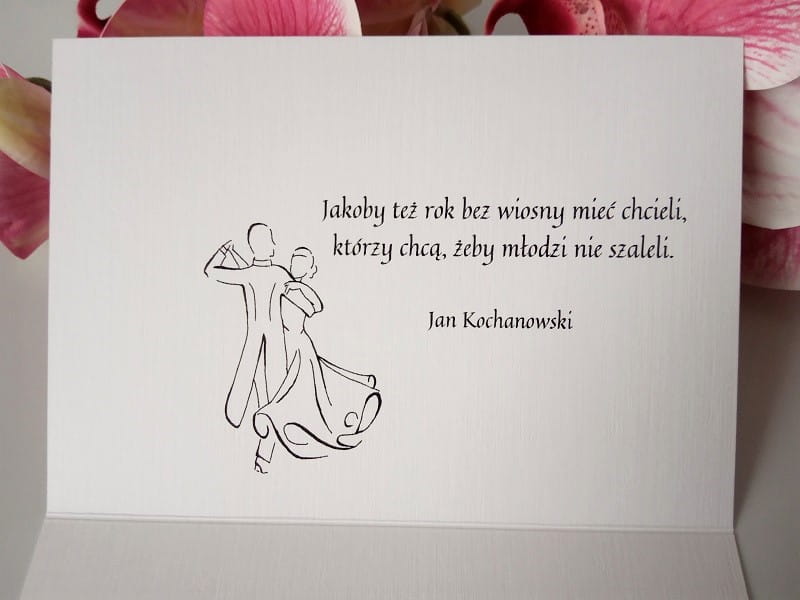 Jakoby też rok bez wiosny mieć chcieli,
którzy chcą, żeby młodzi nie szaleli.
Jan Kochanowski